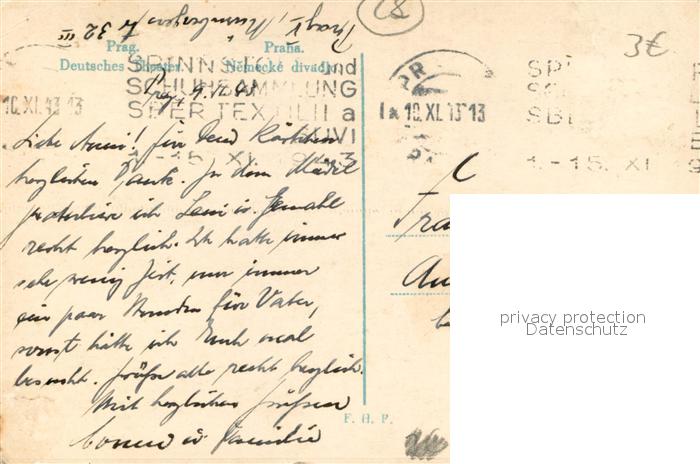 Prag X 32 III
Prag. Praha.
Deutsches Theater. Německé divadlo.
SPINNSTO und
SCHUHSAMMLUNG
SBER TEXTILII a
1.-15. XI.
10.XI.43-13
10.XI. 13
SPI
1.-15. XI
3€
Prag, 9.
Liebe Anni! Für Dein Kärtchen
herzlichen Dank. Zu dem Mädel
gratuliere ich Leni u. Gemahl
recht herzlich. Ich hatte immer
sehr wenig Zeit, nur immer
ein paar Stunden für Vater,
sonst hätte ich Euch mal
besucht. Grüße alle recht herzlich.
Mit herzlichen Grüßen
u. Familie
F. H. P.
privacy protection
Datenschutz